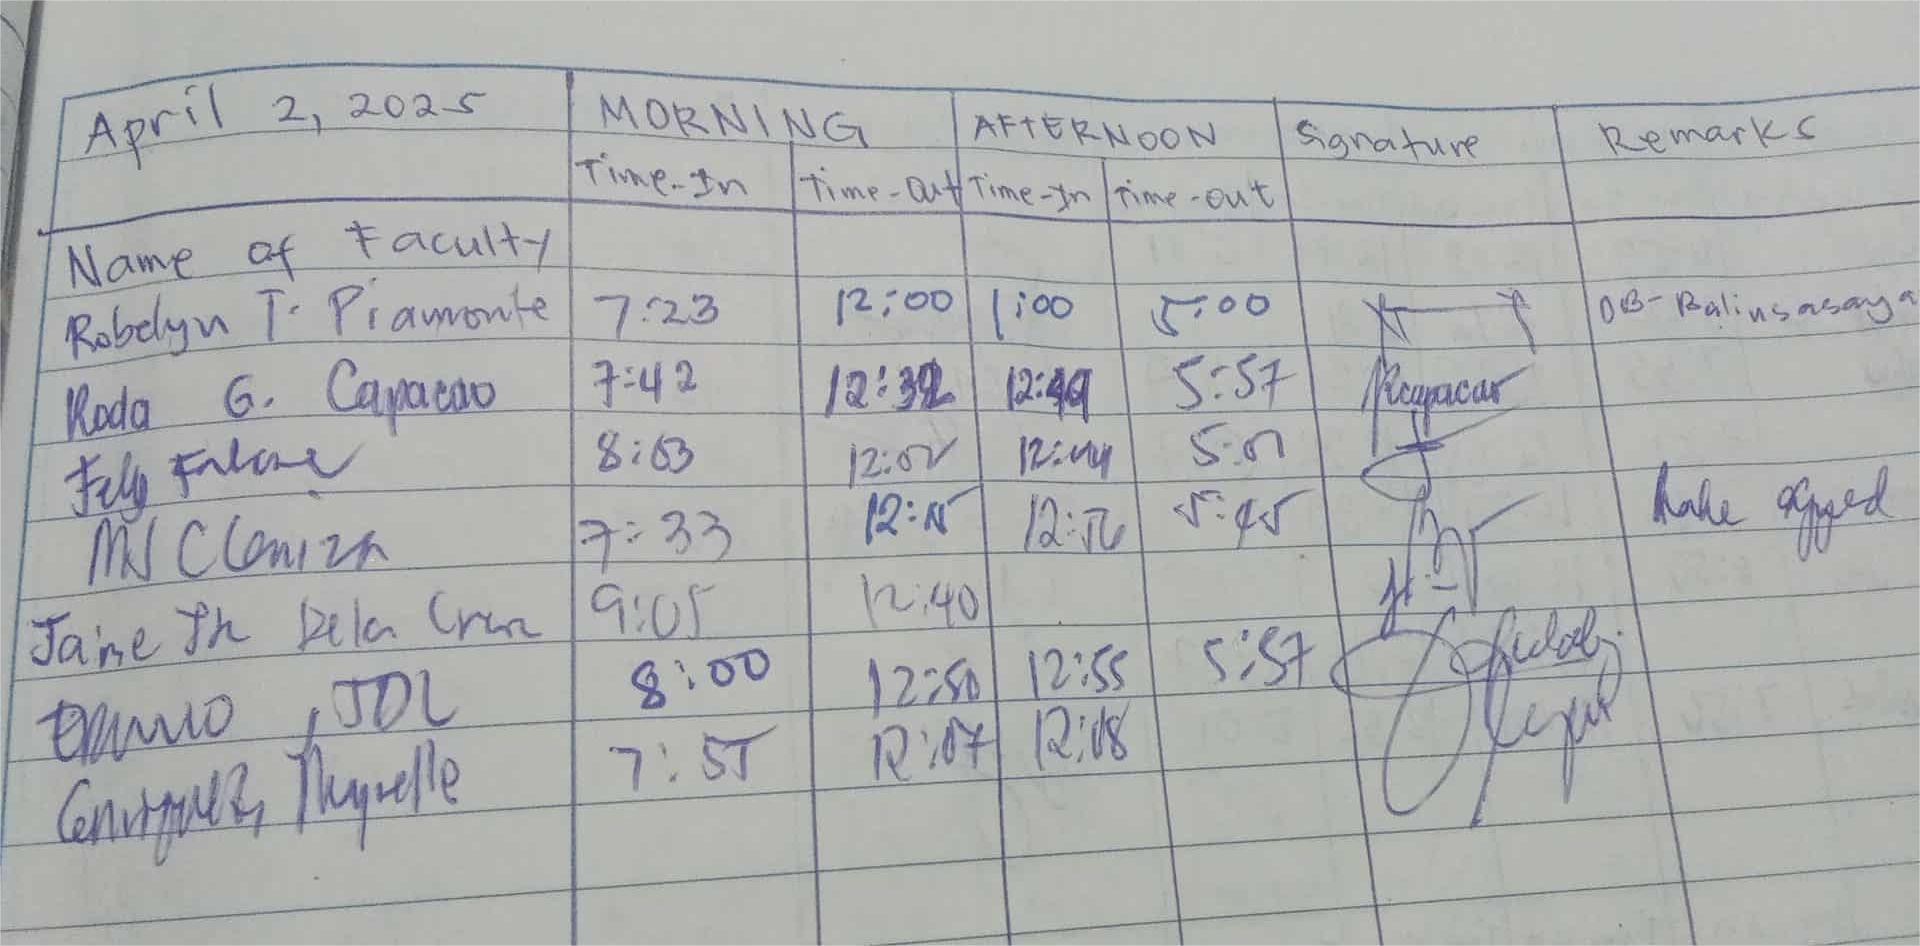 April 2, 2025 MORNING AFTERNOON Signature Remarks
Time-In Time-Out Time-In Time-out
Name of Faculty
Robelyn T. Piamonte 7:23 12:00 1:00 5:00 OB-Balinsasaya
Roda G. Capacao 7:42 12:32 12:49 5:57 Rcapacao
Fely 8:03 12:02 12:44 5:01
MN C Loniza 7:33 12:15 12:56 5:45
Jaime Jr Dela Cruz 9:05 12:40
, JDL 8:00 12:50 12:55 5:57
7:55 12:07 12:08